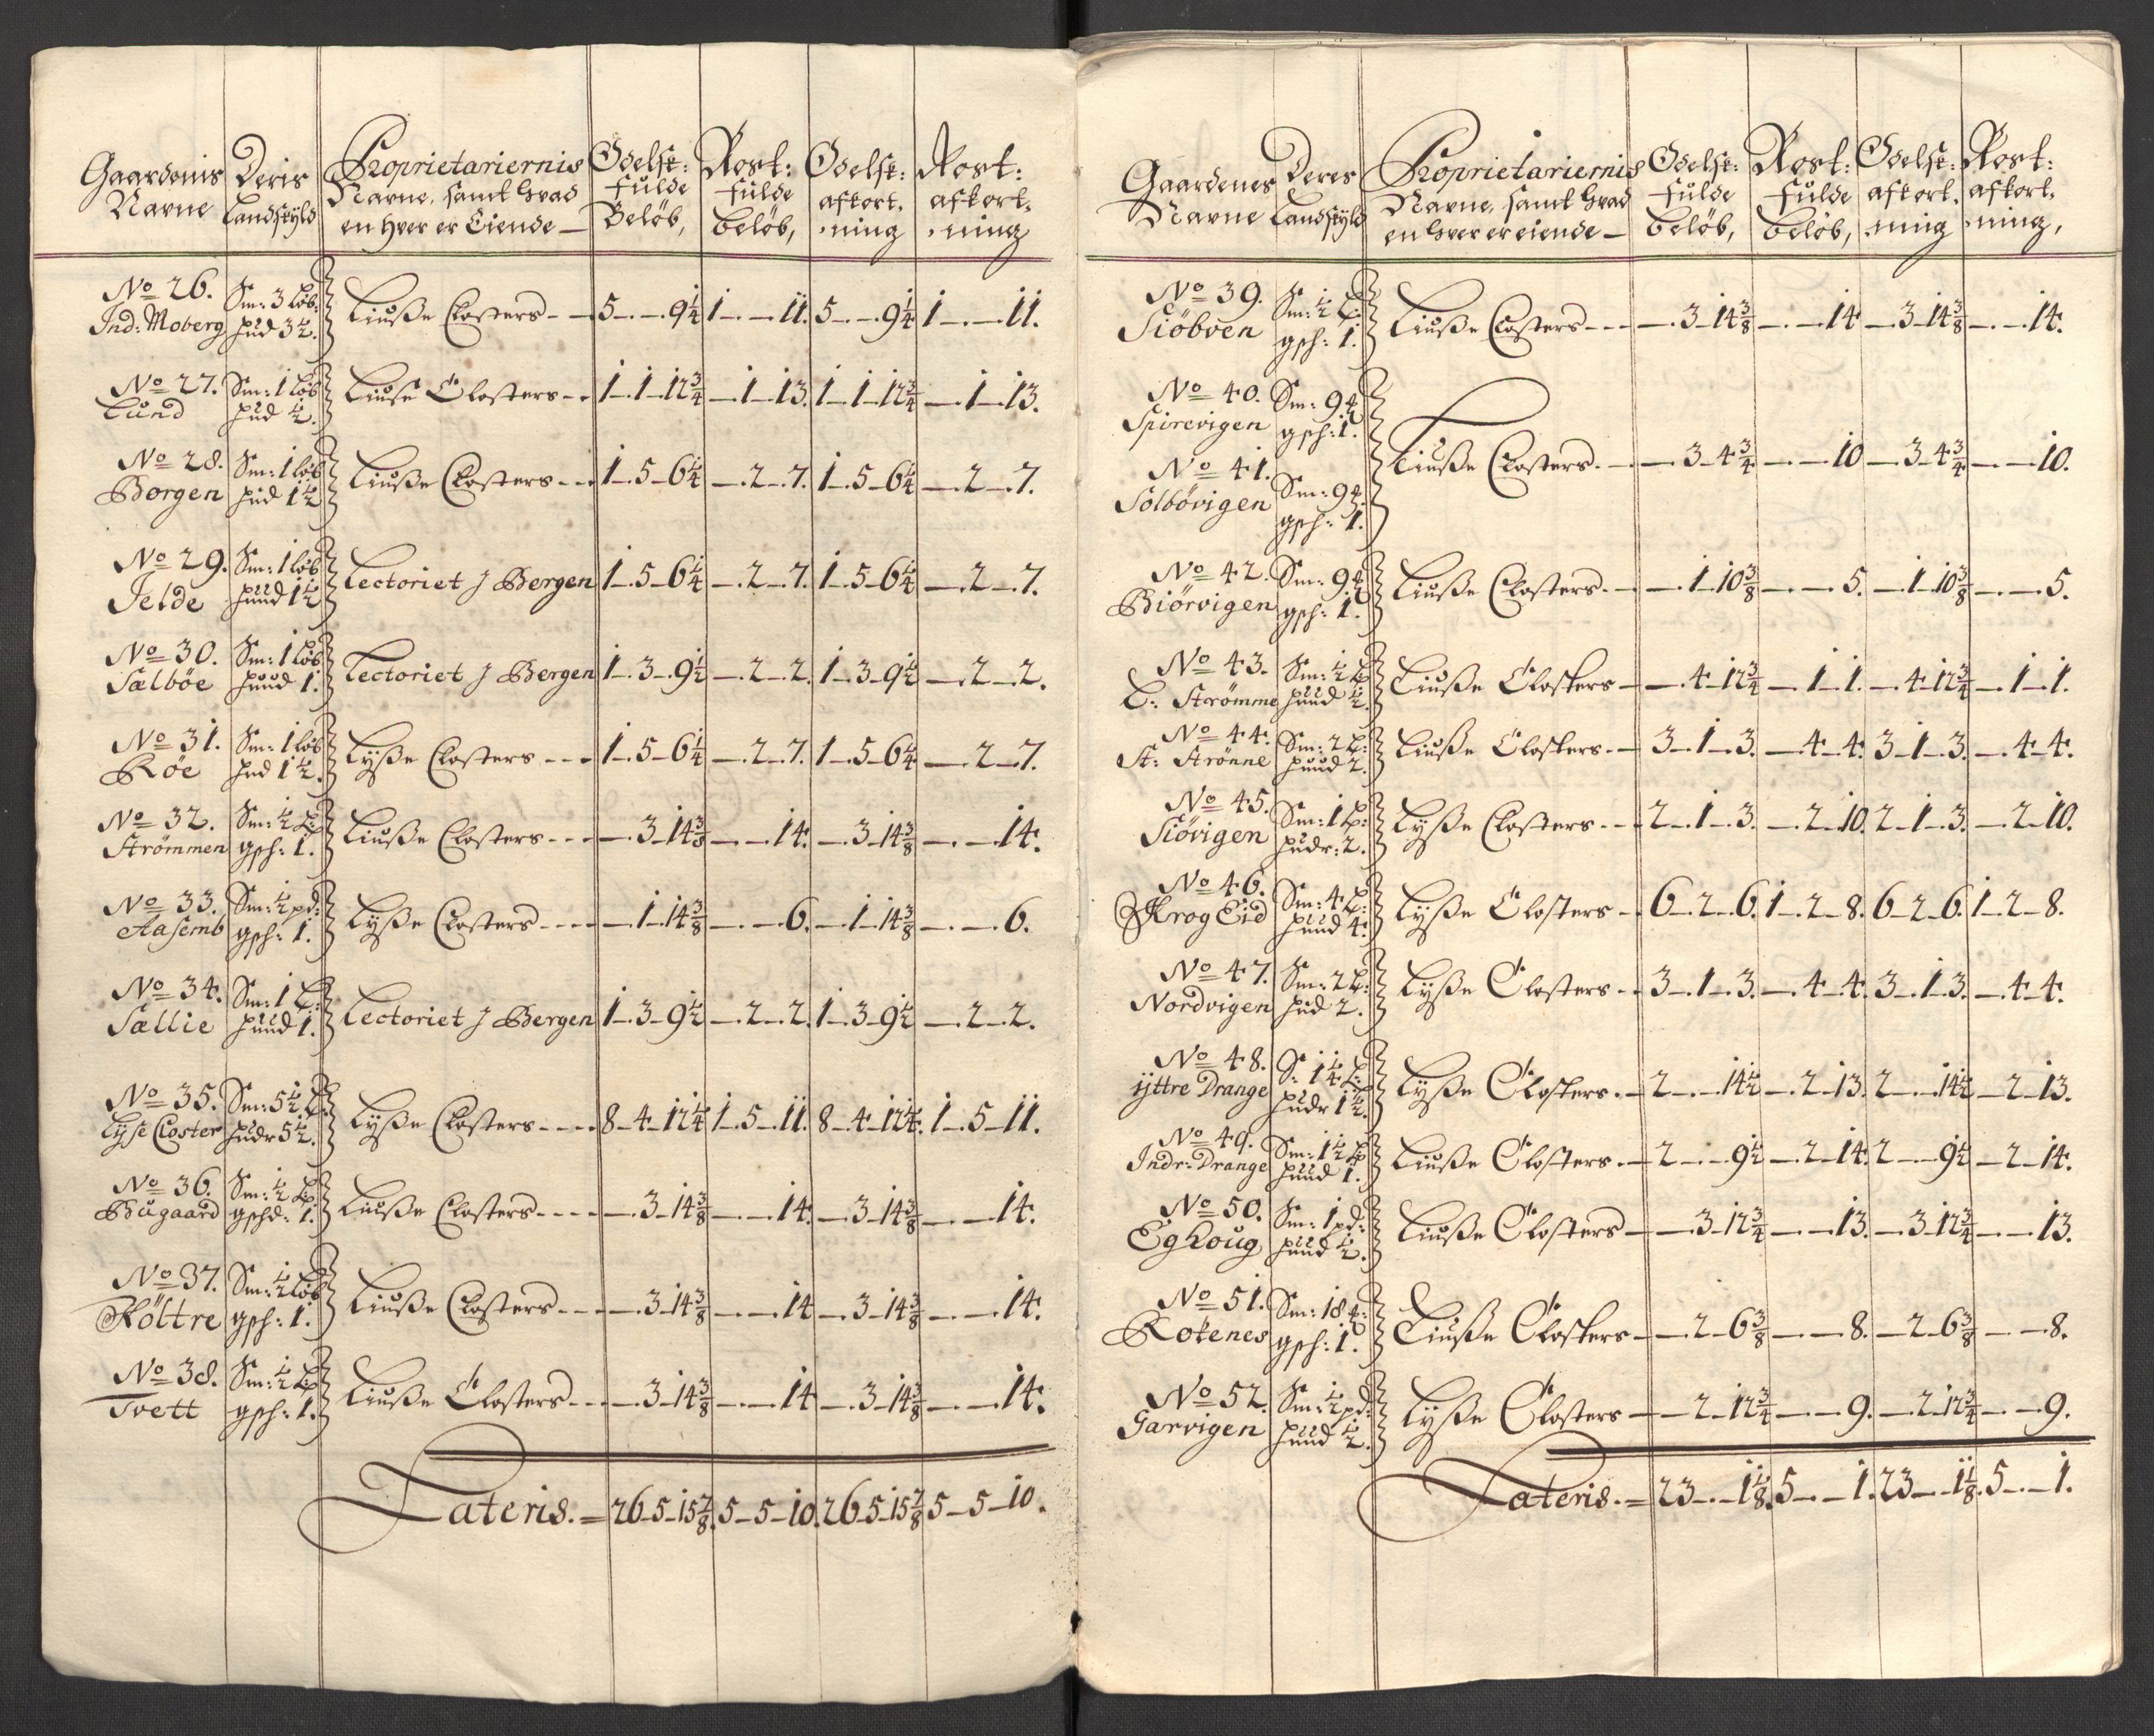 Gaardenis Navne | Deris Landskyld | Proprietariernis Navne, samt hvad en hver er Eiende | Odelsk: fulde Beløb, | Rost: fulde beløb, | Odelsk: afkort. ning | Rost: afkort. ning
No 26. Ind: Moberg | Sm: 3 løb: hud 3½. | Liuße Closters | 5 — 9¼ | 1 — 11. | 5 — 9¼ | 1 — 11.
No 27. Lund | Sm: 1 løb hud ½. | Liuse Closters | 1 1 12¾ | 1 13. | 1 1 12¾ | 1 13.
No 28. Borgen | Sm: 1 løb hud 1½ | Liuße Closters | 1 5 6¼ | 2 7. | 1 5 6¼ | 2 7.
No 29. Jelde | Sm: 1 løb huud 1½ | Lectoriet J Bergen | 1 5 6¼ | 2 7. | 1 5 6¼ | 2 7.
No 30. Sælbøe | Sm: 1 løb huud 1. | Lectoriet J Bergen | 1 3 9½ | 2 2. | 1 3 9½ | 2 2.
No 31. Røe | Sm: 1 løb hud 1½. | Lyße Closters | 1 5 6¼ | 2 7. | 1 5 6¼ | 2 7.
No 32. Strømmen | Sm: ½ L: gsch: 1. | Liuße Closters | 3 14⅜ | 14. | 3 14⅜ | 14.
No 33. Aasemb | Sm: ½ pd: gsch: 1. | Lyße Closters | 1 14⅜ | 6. | 1 14⅜ | 6.
No 34. Sællie | Sm: 1 L: huud 1. | Lectoriet J Bergen | 1 3 9½ | 2 2. | 1 3 9½ | 2 2.
No 35. Lyse Closter | Sm: 5½ L: hudr 5½. | Lyße Closters | 8 4 12¼ | 1 5 11. | 8 4 12¼. | 1 5 11.
No 36. Bugaard | Sm: ½ L: gschd: 1. | Liuße Closters | 3 14⅜ | 14. | 3 14⅜ | 14.
No 37. Røttre | Sm: ½ løb gsch: 1. | Liuße Closters | 3 14⅜ | 14 | 3 14⅜ | 14.
No 38. Tvett | Sm: ½ L: gsch: 1. | Liuße Closters | 3 14⅜ | 14 | 3 14⅜ | 14.
Lateris. = 26 5 15⅞. | 5 5 10. | 26 5 15⅞ | 5 5 10.
Gaardenes Navne | Deres Landskyld | Proprietariernis Navne, samt hvad en hver er eiende | Odelsk: fulde beløb, | Rost: fulde beløb, | Odelsk: afkort. ning | Rost: afkort. ning,
No 39. Siøboen | Sm: ½ L: gsch: 1. | Liuße Closters | 3 14⅜ | 14 | 3 14⅜ | 14.
No 40. Spirevigen | Sm: 9 gsch: 1.
No 41. Solbøvigen | Sm: 9 gsch: 1. | Liuße Closters. | 3 4¾ | 10 | 3 4¾ | 10.
No 42. Biørvigen | Sm: 9 gsch: 1. | Liuße Closters. | 1 10⅜ | 5. | 1 10⅜ | 5.
No 43. L: Strømme | Sm: ½ L huud ½. | Liuße Closters | 4 12¾ | 1 1. | 4 12¾ | 1 1.
No 44. St: Strønne | Sm: 2 L: huud 2. | Liuße Closters. | 3 1 3. | 4 4. | 3 1 3. | 4 4.
No 45. Siøvigen | Sm: 1 L: hudr: 2. | Lyße Closters | 2 1 3. | 2 10. | 2 1 3. | 2 10.
No 46. Krog Eid | Sm: 4 L: huud 4. | Lyße Closters | 6 2 6. | 1 2 8. | 6 2 6. | 1 2 8.
No 47. Nordvigen | Sm: 2 L: hud 2. | Lyße Closters | 3 1 3. | 4 4. | 3 1 3. | 4 4.
No 48. ijttre Drange | S: 1¼ L: hudr 1½. | Lyße Closters. | 2 — 14½ | 2 13. | 2 — 14½ | 2 13.
No 49. Indr: Drange | Sm: 1½ L huud 1. | Liuße Closters. | 2 — 9½ | 2 14. | 2 — 9½ | 2 14.
No 50. Eghoug | Sm: 1 pd: huud ½. | Liuße Closters | 3 12¾ | 13. | 3 12¾ | 13.
No 51. Rotenes | Sm: 18 gsch: 1. | Liuße Closters | 2 6⅜ | 8. | 2 6⅜ | 8.
No 52. Garvigen | Sm: ½ pd: huud ½. | Lyße Closters | 2 12¾ | 9. | 2 12¾ | 9.
Lateris. = 23 — 1⅛. | 5 — 1. | 23 — 1⅛. | 5 — 1.